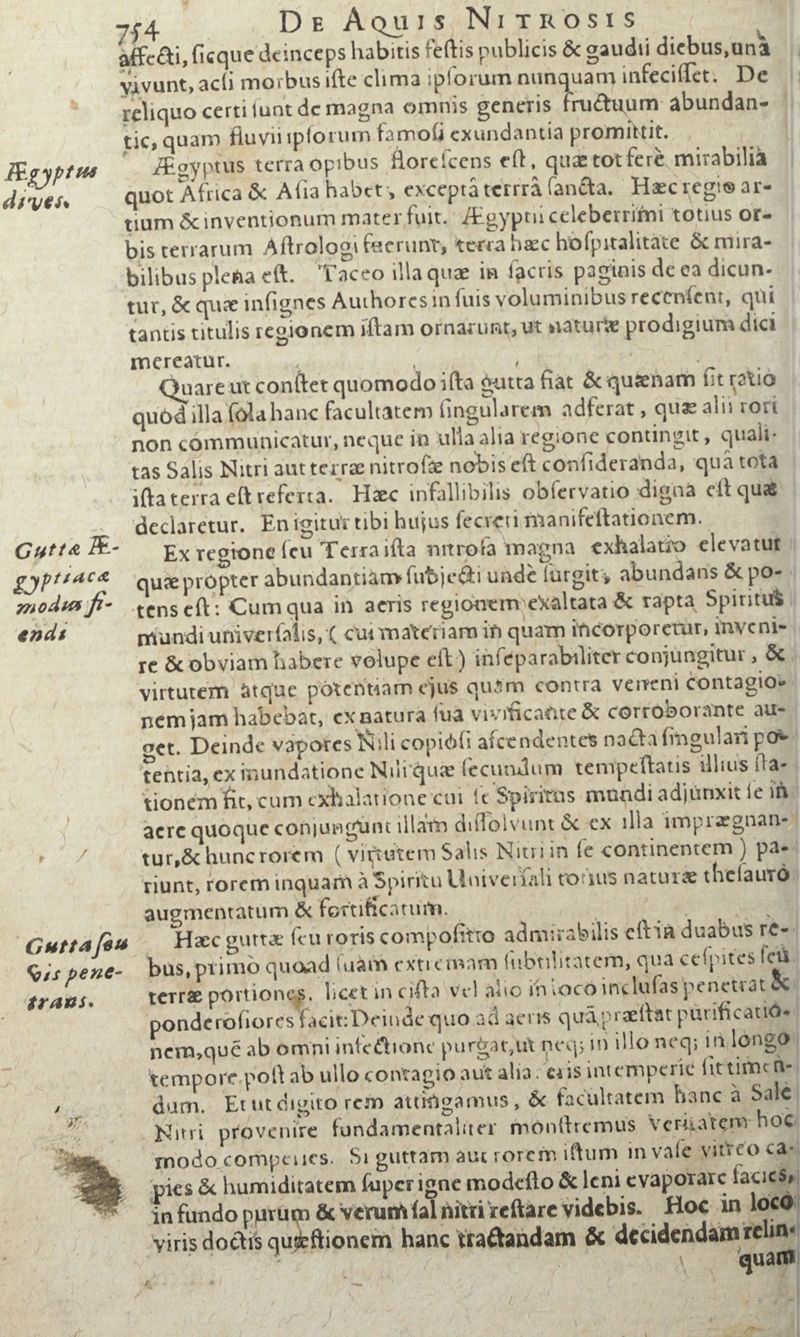 754 DE AQUIS NITROSIS
affecti, sicque deinceps habitis festis publicis & gaudii diebus, unà
vivunt, acsi morbus iste clima ipsorum nunquam infecisset. De
reliquo certi sunt de magna omnis generis fructuum abundan-
tie, quam fluvii ipsorum famosi exundantia promittit.
Ægyptus dives.
Ægyptus terra opibus florescens est, quæ tot ferè mirabilia
quot Africa & Asia habet, exceptâ terrrâ sancta. Hæc regio ar-
tium & inventionum mater fuit. Ægyptii celeberrimi totius or-
bis terrarum Astrologi fuerunt, terra hæc hospitalitate & mira-
bilibus plena est. Taceo illa quæ in sacris paginis de ea dicun-
tur, & quæ insignes Authores in suis voluminibus recensent, qui
tantis titulis regionem istam ornarunt, ut naturæ prodigium dici
mereatur.
Quare ut constet quomodo ista gutta fiat & quænam sit ratio
quòd illa sola hanc facultatem singularem adferat, quæ alii rori
non communicatur, neque in ulla alia regione contingit, quali-
tas Salis Nitri aut terræ nitrosæ nobis est consideranda, quâ tota
ista terra est referta. Hæc infallibilis observatio digna est quæ
declaretur. En igitur tibi hujus secreti manifestationem.
Guttæ Æ-
gyptiacæ
modus fi-
endi
Ex regione seu Terra ista nitrosa magna exhalatio elevatur
quæ propter abundantiam subjecti unde surgit, abundans & po-
tens est: Cum qua in aeris regionem exaltata & rapta Spiritus
mundi universalis, (cui materiam in quam incorporetur, inveni-
re & obviam habere volupe est) inseparabiliter conjungitur, &
virtutem atque potentiam ejus quàm contra veneni contagio-
nem jam habebat, ex natura sua vivificante & corroborante au-
get. Deinde vapores Nili copiòsi ascendentes nacta singulari po-
tentia, ex inundatione Nili quæ secundum tempestatis illius sta-
tionem fit, cum exhalatione cui se Spiritus mundi adjunxit se in
aere quoque conjungunt illam dissolvunt & ex illa impræegnan-
tur, & hunc rorem (virtutem Salis Nitri in se continentem) pa-
riunt, rorem inquam à Spiritu Universali totius naturæ thesauro
augmentatum & fortificatum.
Gutta seu
vis pene-
trans.
Hæc guttæ seu roris compositio admirabilis est in duabus re-
bus, primò quoad suam extremam subtilitatem, qua cespites seu
terræ portiones. licet in cista vel alio in loco inclusas penetrat &
ponderosiores facit: Deinde quo ad aeris quâ præstat purificatio-
nem, quē ab omni infectione purgat, ut neq; in illo neq; in longo
tempore post ab ullo contagio aut alia. eris intemperie sit timen-
dum. Et ut digito rem attingamus, & facultatem hanc à Sale
Nitri provenire fundamentaliter monstremus Veritatem hoc
modo comperies. Si guttam aut rorem istum in vase vitreo ca-
pies & humiditatem super igne modesto & leni evaporare facies,
in fundo purum & verum sal nitri restare videbis. Hoc in loco
viris doctis quæstionem hanc tractandam & decidendam relin-
quam